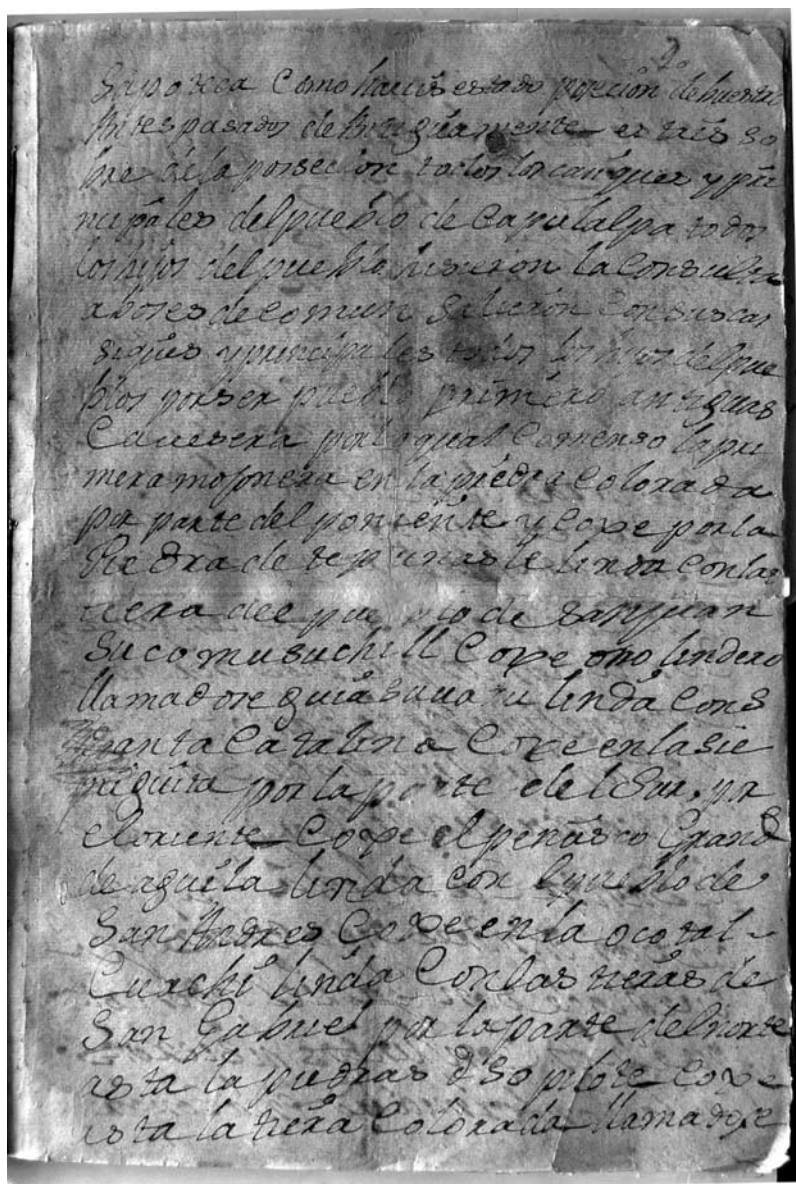 2o
Sapoteca Como haueis estado poseción de buestro
Antes pasados de Antiguamente en tres so
bre de la poisecion todos los casiques y prin
cipales del pueblo de Capulalpa todos
los hijos del pueblo hisieron la Consulta
aboses de comun Salieron Con sus cas
siques y principales todos los hijos del pue
blos por ser pueblo primero antiguas
Cauesera por lo qual Comenso la pri
mera mojonera en la piedra Colorada
por parte del poniente y Coxe por la
Piedra de tepunastle linda Con las
tiera del pueblo de San Juan
Sucomusuchill Coxe otro lindero
llamadose linda Con S
Santa Catalina Coxe en la sie
neguita por la parte del Sur, por
el oriente Coxe el peñasco Grand
de aguila linda con el pueblo de
San Andres Coxe en la ocotal
Cuachi linda Con las tieras de
San Gabriel por la parte del norte
esta la piedras d Sopilote Coxe
esta la tiera Colorada llamadose